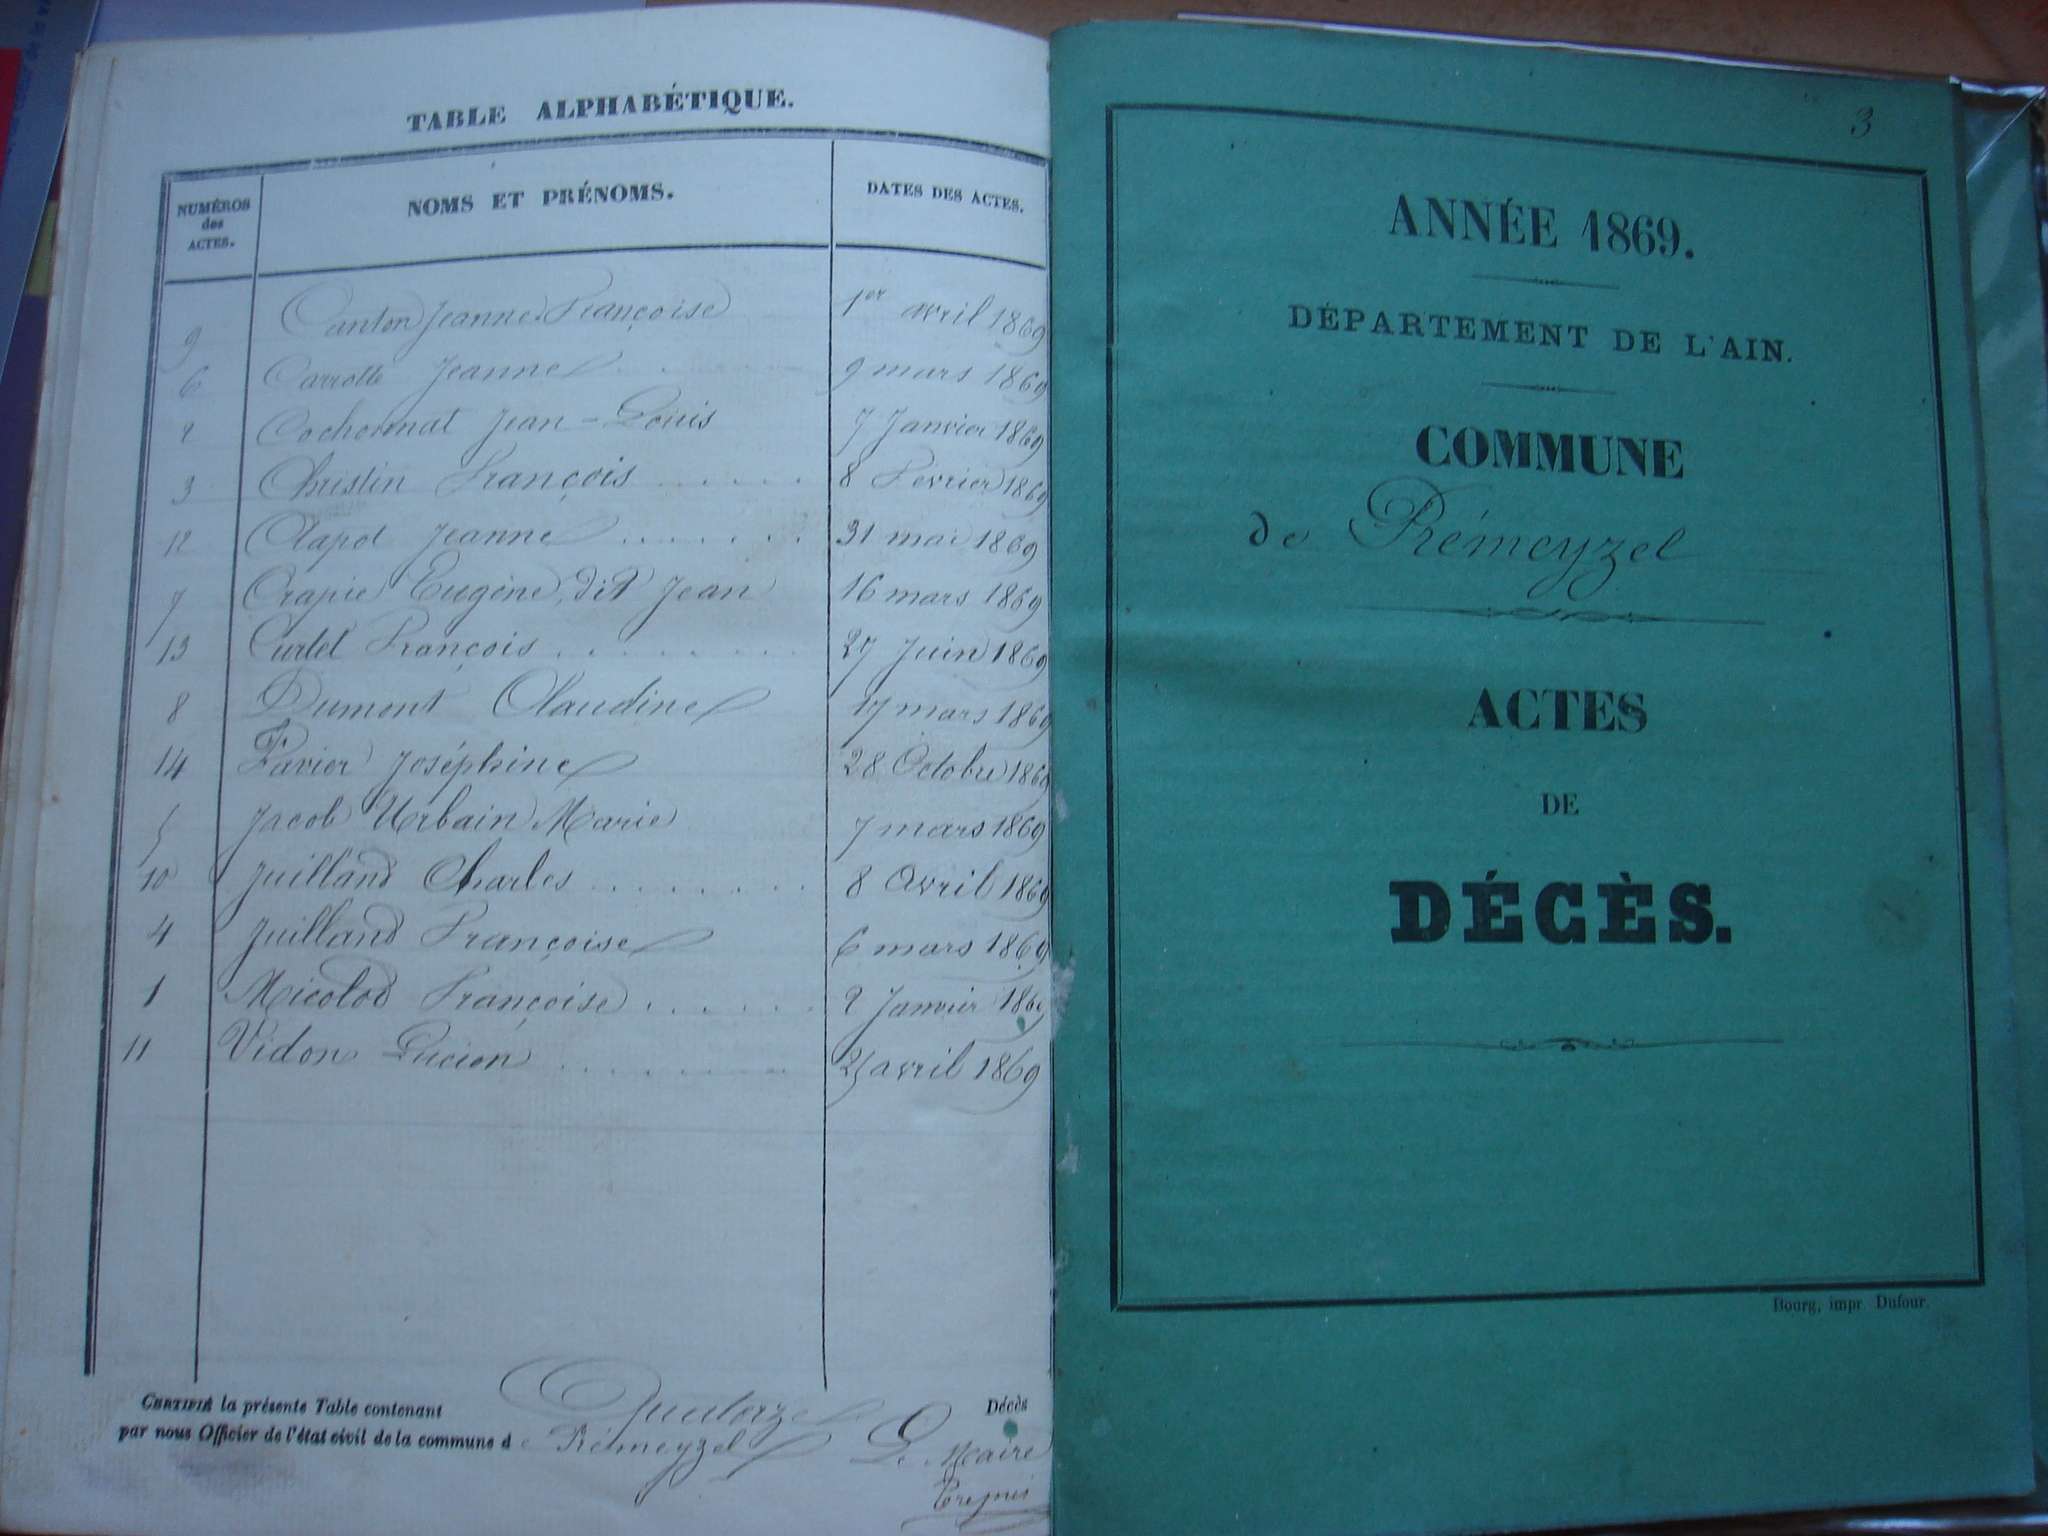 TABLE ALPHABÉTIQUE.
NUMÉROS des ACTES. NOMS ET PRÉNOMS. DATES DES ACTES.
9 Canton Jeanne Françoise 1er avril 1869
6 Carrotte Jeanne 9 mars 1869
2 Cochonnat Jean-Louis 7 Janvier 1869
3 Christin François 8 Fevrier 1869
12 Clapot Jeanne 31 mai 1869
7 Crapie Eugène, dit Jean 16 mars 1869
13 Curtet François 27 Juin 1869
8 Dumont Claudine 17 mars 1869
14 Favier Joséphine 28 Octobre 1869
5 Jacob Urbain Marie 7 mars 1869
10 Juilland Charles 8 Avril 1869
4 Juilland Françoise 6 mars 1869
1 Micolod Françoise 2 Janvier 1869
11 Vidon Lucien 25 avril 1869
CERTIFIÉ la présente Table contenant Quatorze Décès
par nous Officier de l'état civil de la commune de Prémeyzel Le Maire
3
ANNÉE 1869.
DÉPARTEMENT DE L'AIN.
COMMUNE
de Prémeyzel
ACTES
DE
DÉCÈS.
Bourg, impr. Dufour.